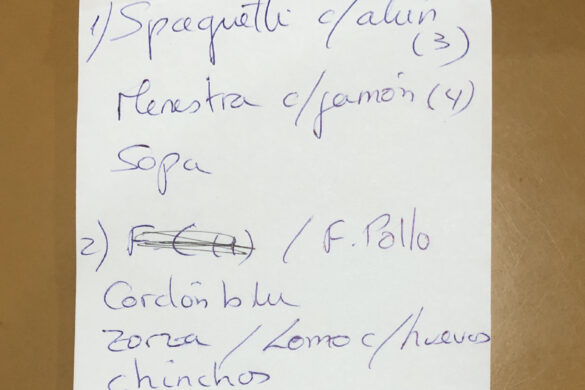 1) Spaguetti c/atún
(3)
Menestra c/jamón (4)
Sopa
2) / F. Pollo
Cordón blu
Zorza / Lomo c/huevos
chinchos